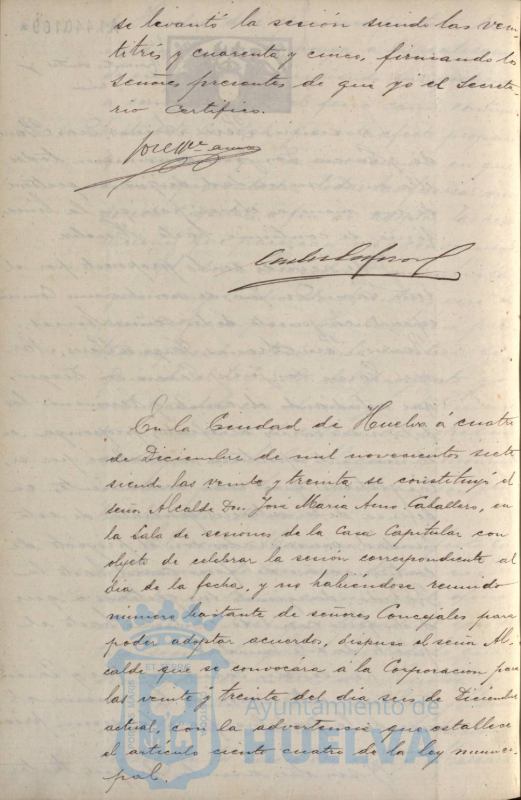 se levantó la sesión siendo las vein
titrés y cuarenta y cinco, firmando los
señores presentes de que yo el Secreta-
rio certifico.
En la Ciudad de Huelva á cuatro
de Diciembre de mil novecientos siete
siendo las veinte y treinta se constituyó el
señor Alcalde Don José Maria Amo Caballero, en
la Sala de sesiones de la Casa Capitular con
objeto de celebrar la sesión correspondiente al
dia de la fecha, y no habiéndose reunido
número bastante de señores Concejales para
poder adoptar acuerdos, dispuso el señor Al-
calde que se convocára á la Corporación para
las veinte y treinta del dia seis de Diciembre
actual, con la advertencia que establece
el artículo ciento cuatro de la ley munici-
pal.
Ayuntamiento de
HUELVA